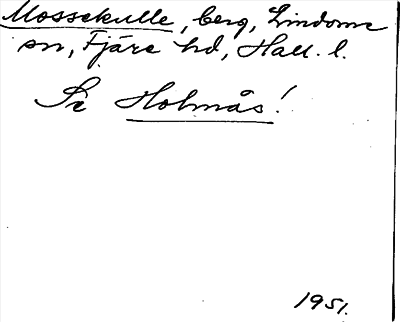 Mossekulle, berg, Lindome
sn, Fjäre hd, Hall. l.
Se Holmås!
1951.